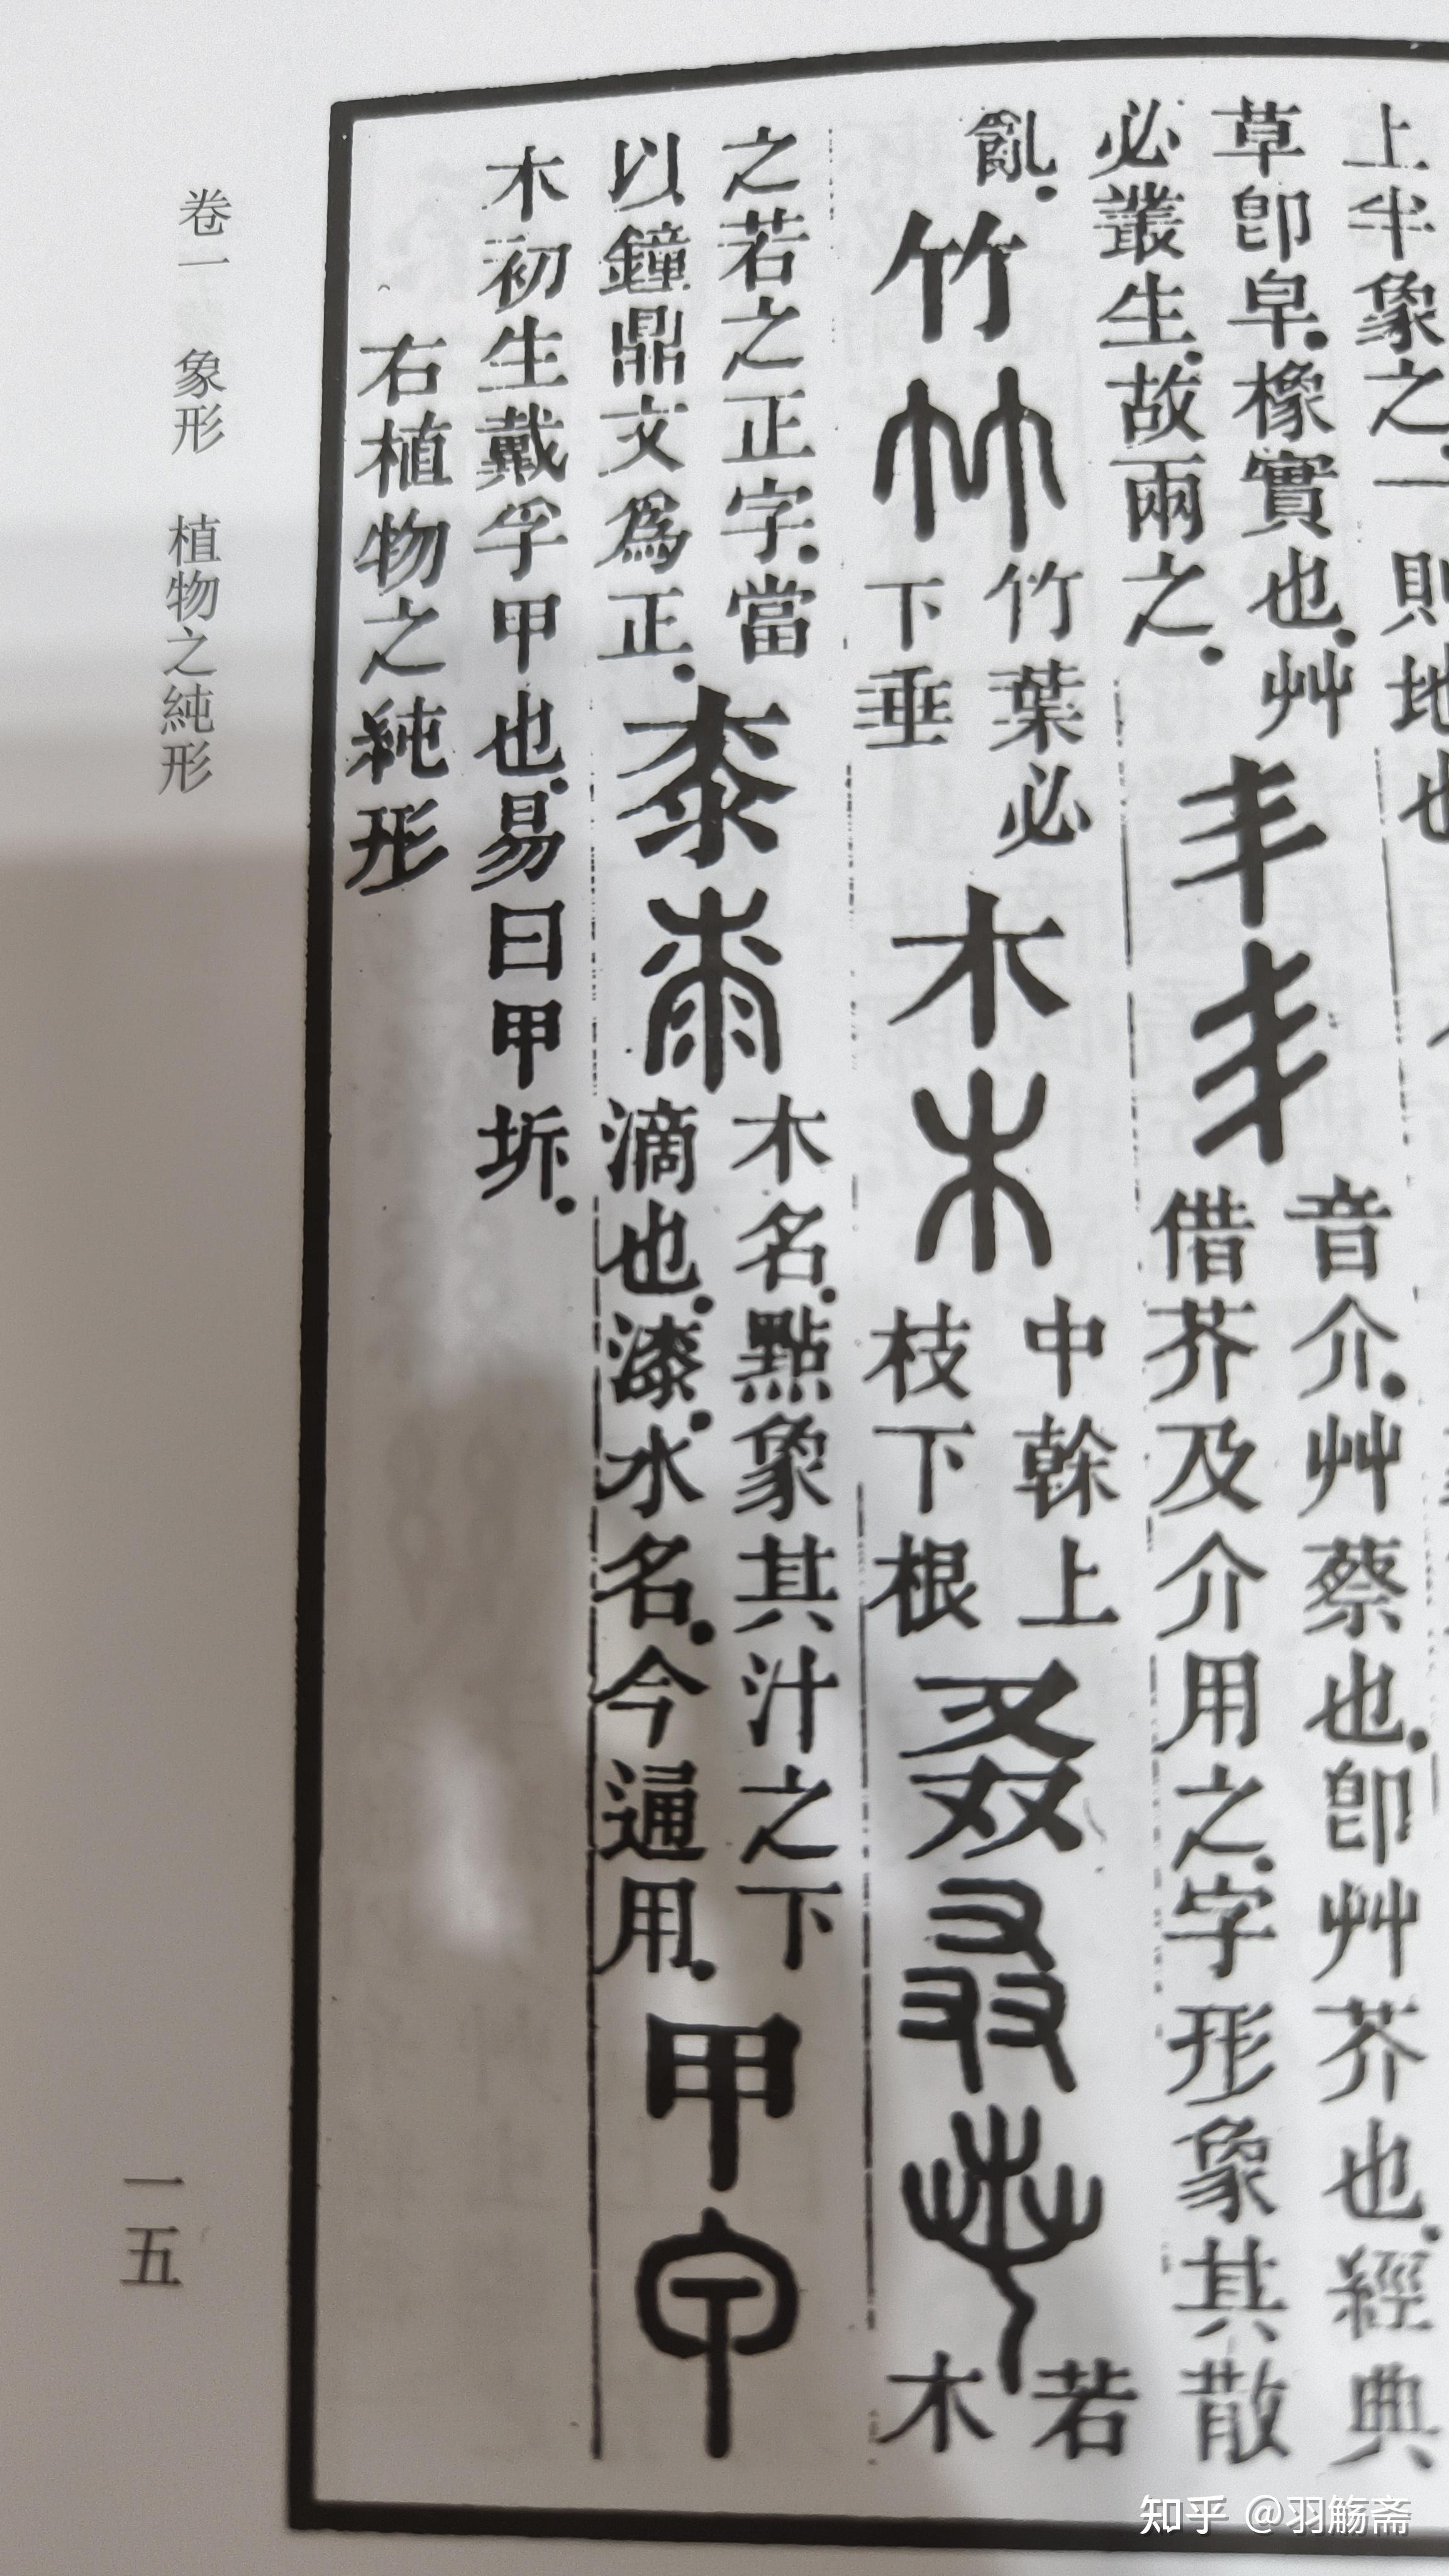 上半象之.一則地也
草卽皁.橡實也.艸
必叢生.故兩之.
丯丯
音介.艸蔡也.卽艸芥也.經典
借芥及介用之.字形象其散
亂.
竹竹
竹葉必
下垂
木木
中榦上
枝下根
叒叒
若
木
之若之正字.當
以鐘鼎文爲正.
桼桼
木名.點象其汁之下
滴也.漆.水名.今通用.
甲甲
木初生戴孚甲也.易曰甲坼.
右植物之純形
卷一 象形 植物之純形
一五
知乎 @羽觞斋